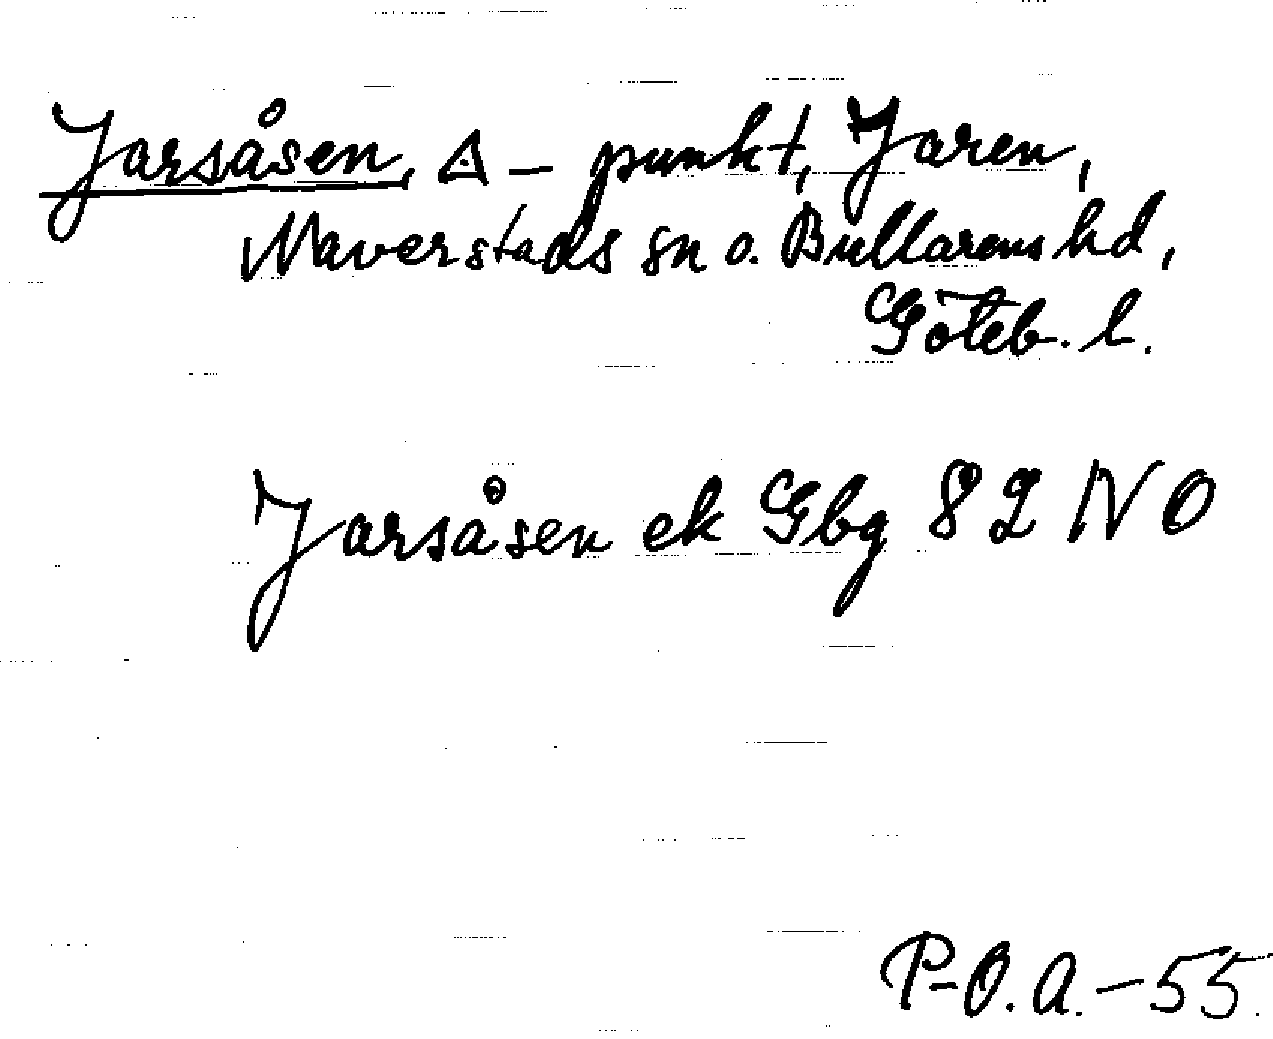 Jarsåsen, △ – punkt, Jaren,
Naverstads sn o. Bullarens hd,
Göteb. l.
Jarsåsen ek Gbg 82 NO
P-O. A. – 55.